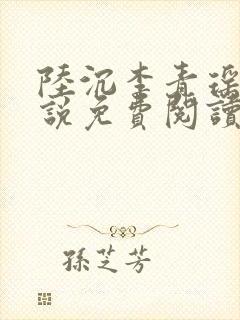 陸沉李青瑶
說免費閱讀
孫芝芳